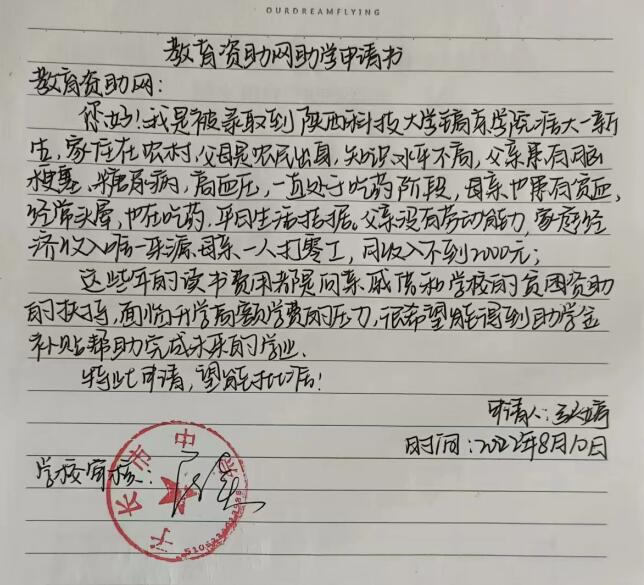 OURDREAMFLYING
教育资助网助学申请书
教育资助网:
你好!我是被录取到陕西科技大学镐京学院准大一新
生,家住在农村,父母是农民出身,知识水平不高,父亲患有脑
梗塞、糖尿病,高血压,一直处于吃药阶段,母亲也患有贫血,
经常头晕,也在吃药,平日生活拮据。父亲没有劳动能力,家庭经
济收入唯一来源母亲一人打零工,月收入不到2000元;
这些年的读书费用都是向亲戚借和学校的贫困资助
的扶持,面临升学高额学费的压力,很希望能得到助学金
补贴帮助完成未来的学业.
特此申请,望能批准!
申请人:
时间:2022年8月10日
学校审核:
子长市中学